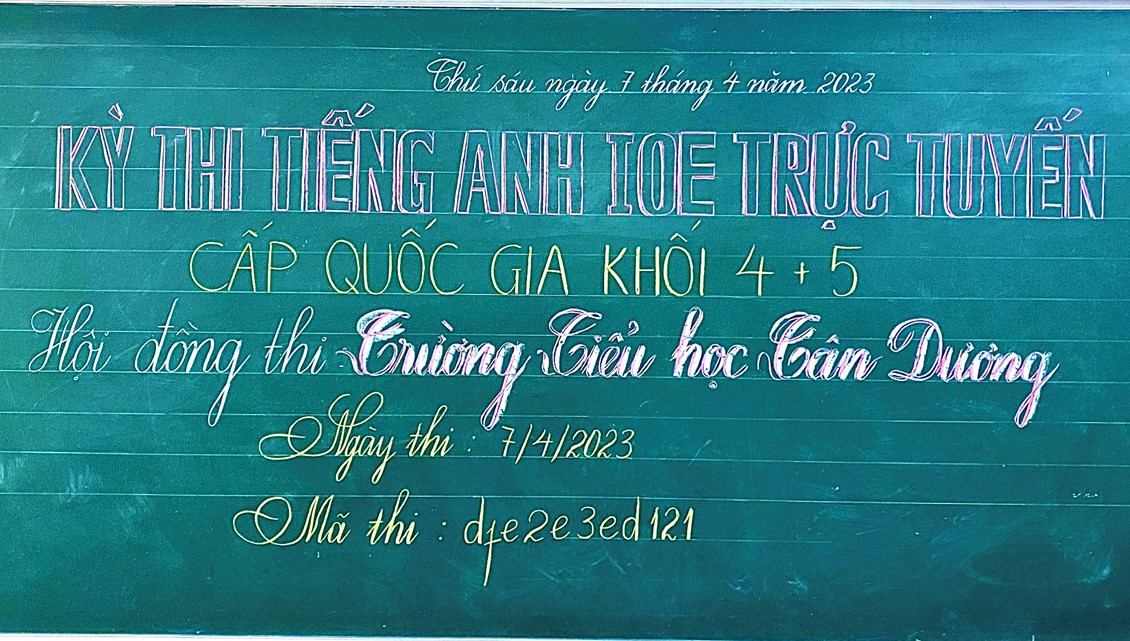 Thứ sáu ngày 7 tháng 4 năm 2023
KỲ THI TIẾNG ANH IOE TRỰC TUYẾN
CẤP QUỐC GIA KHỐI 4 + 5
Hội đồng thi Trường Tiểu học Tân Dương
Ngày thi : 7/4/2023
Mã thi : dfe2e3ed121